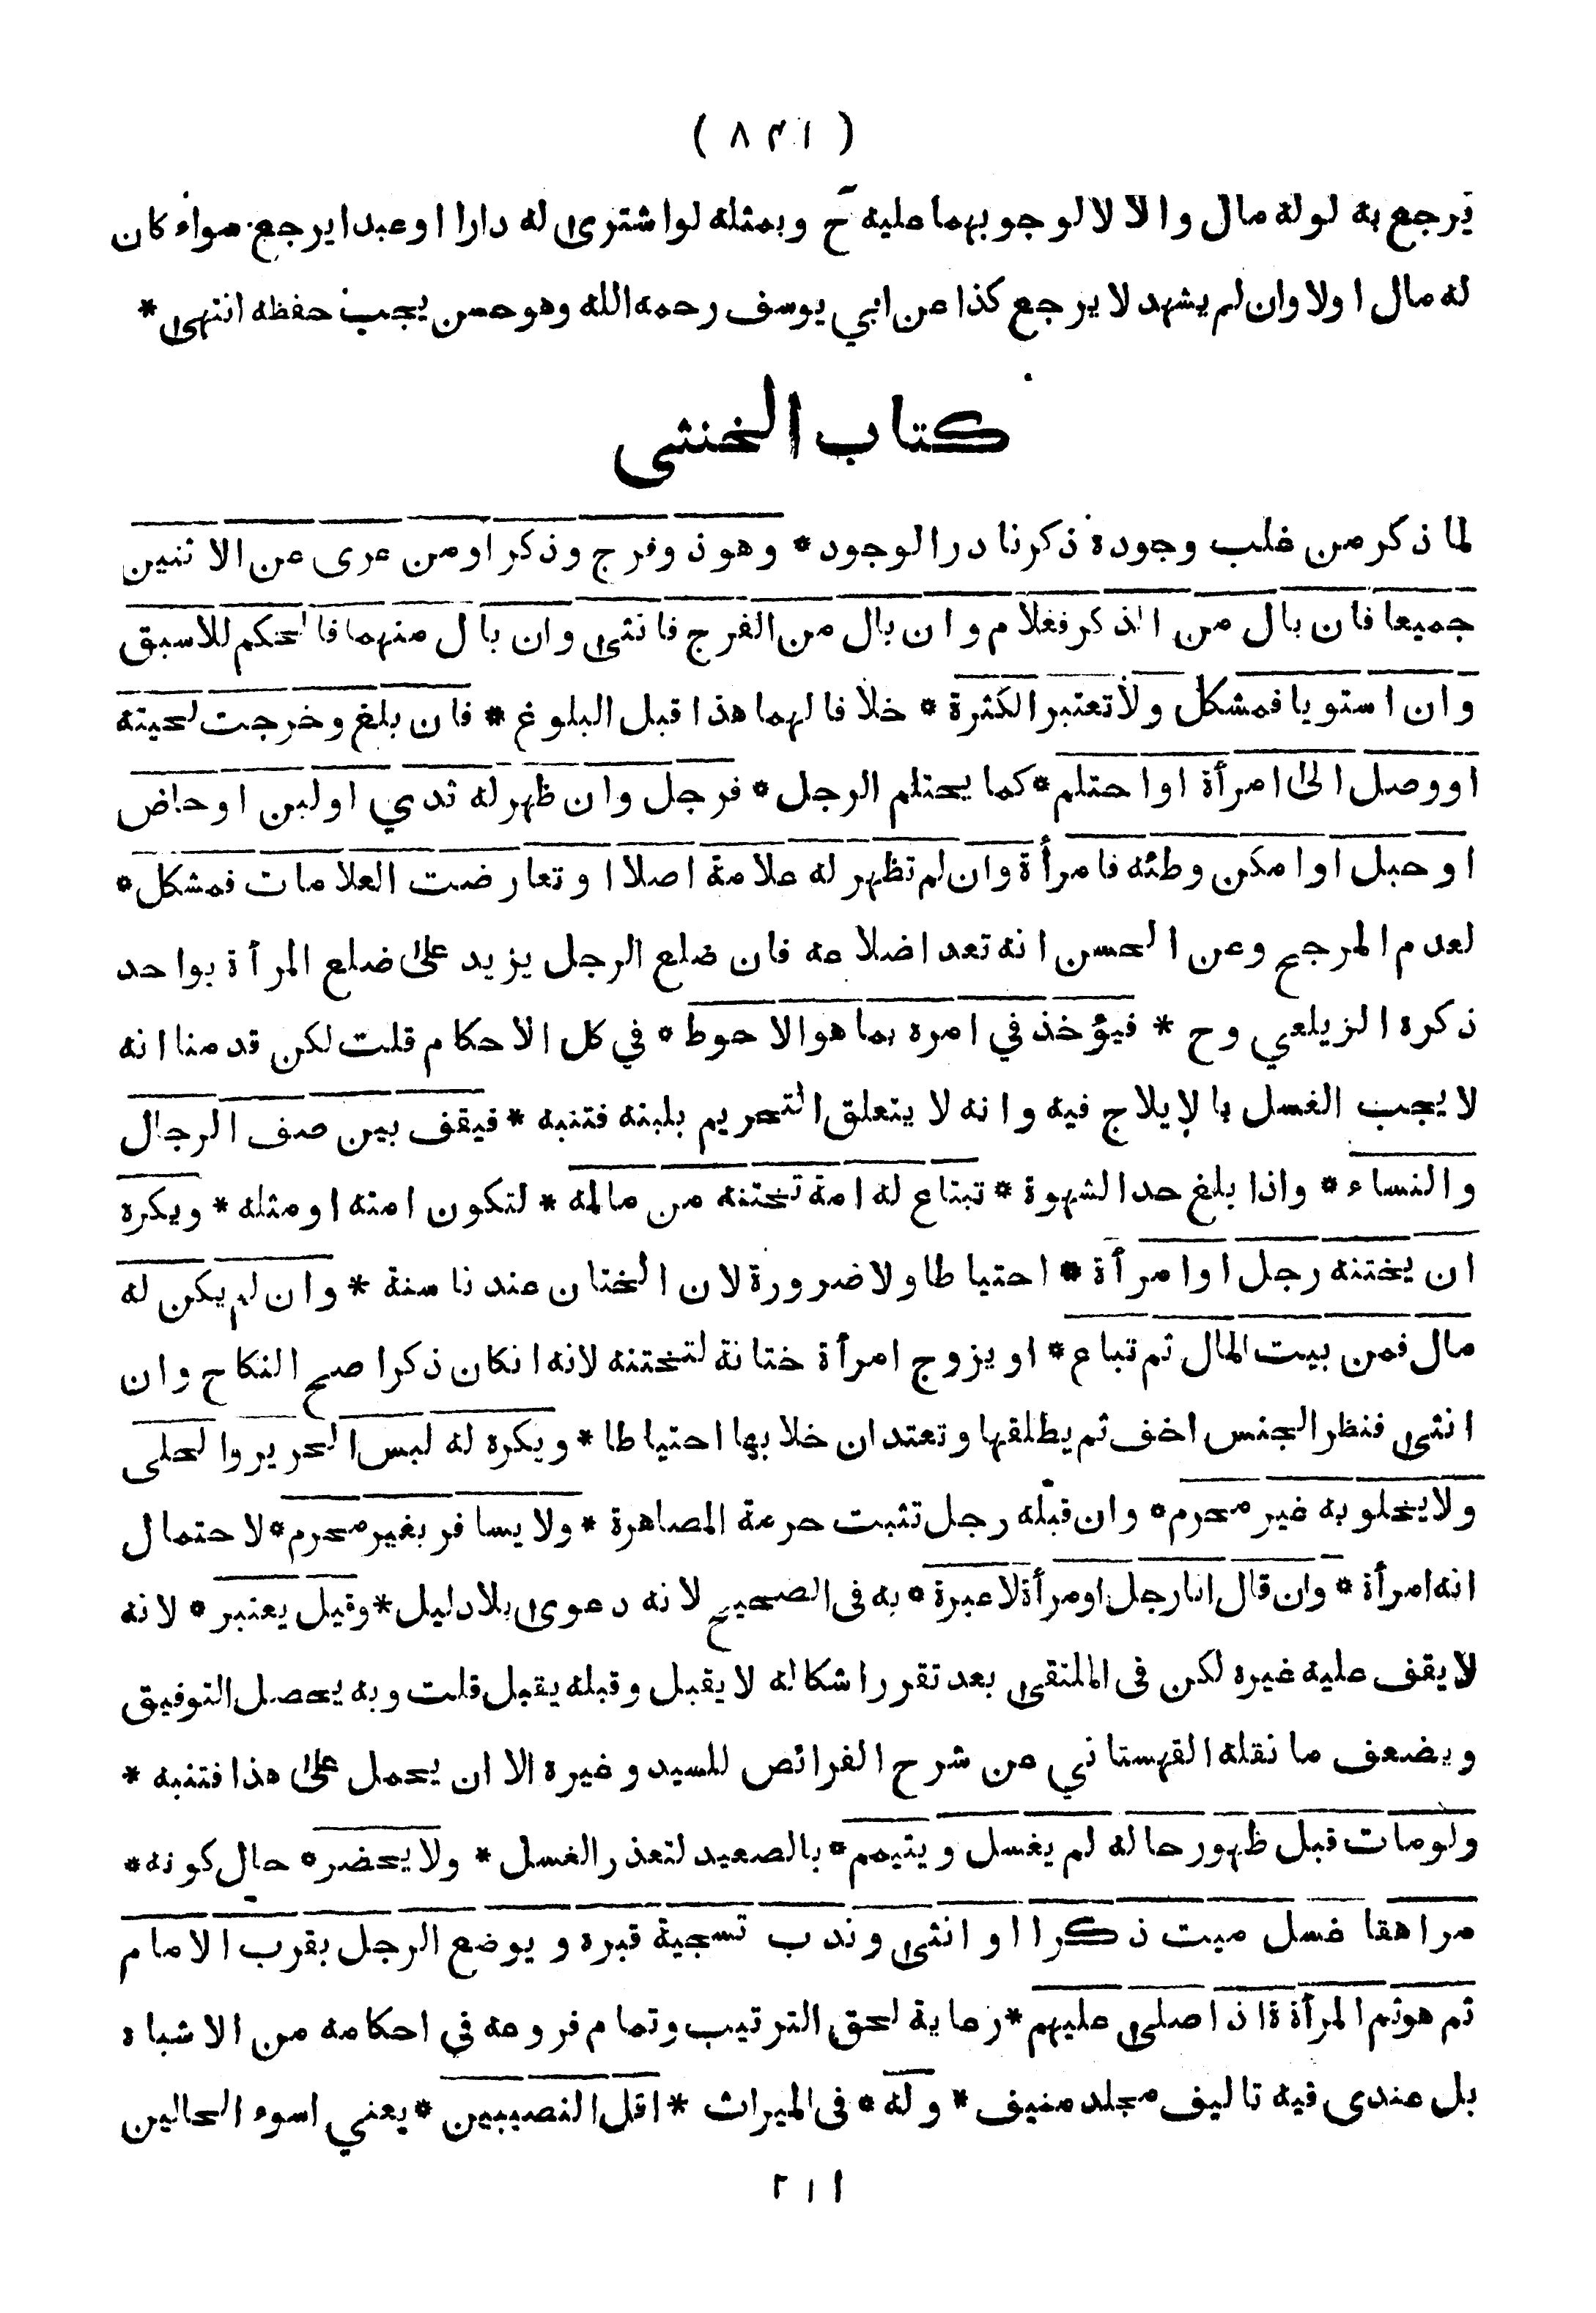 ( ٨٤١ )
يرجع به لو له مال والا لا لوجوبهما عليه ح وبمثله لو اشترى له دارا او عبدا يرجع سواء كان
له مال اولا وان لم يشهد لا يرجع كذا عن ابي يوسف رحمه الله وهو حسن يجب حفظه انتهى *
كتاب الخنثى
لما ذكر من غلب وجوده ذكر نادر الوجود * وهو ذو فرج وذكر او من عرى عن الاثنين
جميعا فان بال من الذكر فغلام وان بال من الفرج فانثى وان بال منهما فالحكم للاسبق
وان استويا فمشكل ولا تعتبر الكثرة * خلافا لهما هذا قبل البلوغ * فان بلغ وخرجت لحيته
او وصل الى امرأة او احتلم * كما يحتلم الرجل * فرجل وان ظهر له ثدي او لبن او حاض
او حبل او امكن وطئه فامرأة وان لم تظهر له علامة اصلا او تعارضت العلامات فمشكل *
لعدم المرجح وعن الحسن انه تعد اضلاعه فان ضلع الرجل يزيد على ضلع المرأة بواحد
ذكره الزيلعي وح * فيؤخذ في امره بما هو الاحوط * في كل الاحكام قلت لكن قدمنا انه
لا يجب الغسل بالإيلاج فيه وانه لا يتعلق التحريم بلبنه فتنبه * فيقف بين صف الرجال
والنساء * واذا بلغ حد الشهوة * تبتاع له امة تختنه من ماله * لتكون امته او مثله * ويكره
ان يختنه رجل او امرأة * احتياطا ولا ضرورة لان الختان عندنا سنة * وان لم يكن له
مال فمن بيت المال ثم تباع * او يزوج امرأة ختانة لتختنه لانه انكان ذكرا صح النكاح وان
انثى فنظر الجنس اخف ثم يطلقها وتعتد ان خلا بها احتياطا * ويكره له لبس الحرير والحلى
ولا يخلو به غير محرم * وان قبّله رجل تثبت حرمة المصاهرة * ولا يسافر بغير محرم * لاحتمال
انه امرأة * وان قال انا رجل او مرأة لا عبرة * به فى الصحيح لانه دعوى بلا دليل * وقيل يعتبر * لانه
لا يقف عليه غيره لكن فى الملتقى بعد تقرر اشكاله لا يقبل وقبله يقبل قلت وبه يحصل التوفيق
ويضعف ما نقله القهستاني عن شرح الفرائض للسيد وغيره الا ان يحمل على هذا فتنبه *
ولو مات قبل ظهور حاله لم يغسل ويتيمم * بالصعيد لتعذر الغسل * ولا يحضر * حال كونه *
مراهقا غسل ميت ذكرا او انثى وندب تسجية قبره ويوضع الرجل بقرب الامام
ثم هو ثم المرأة اذا صلى عليهم * رعاية لحق الترتيب وتمام فروعه في احكامه من الاشباه
بل عندى فيه تاليف مجلد منيف * وله * فى الميراث * اقل النصيبين * يعني اسوء الحالين
٢١١